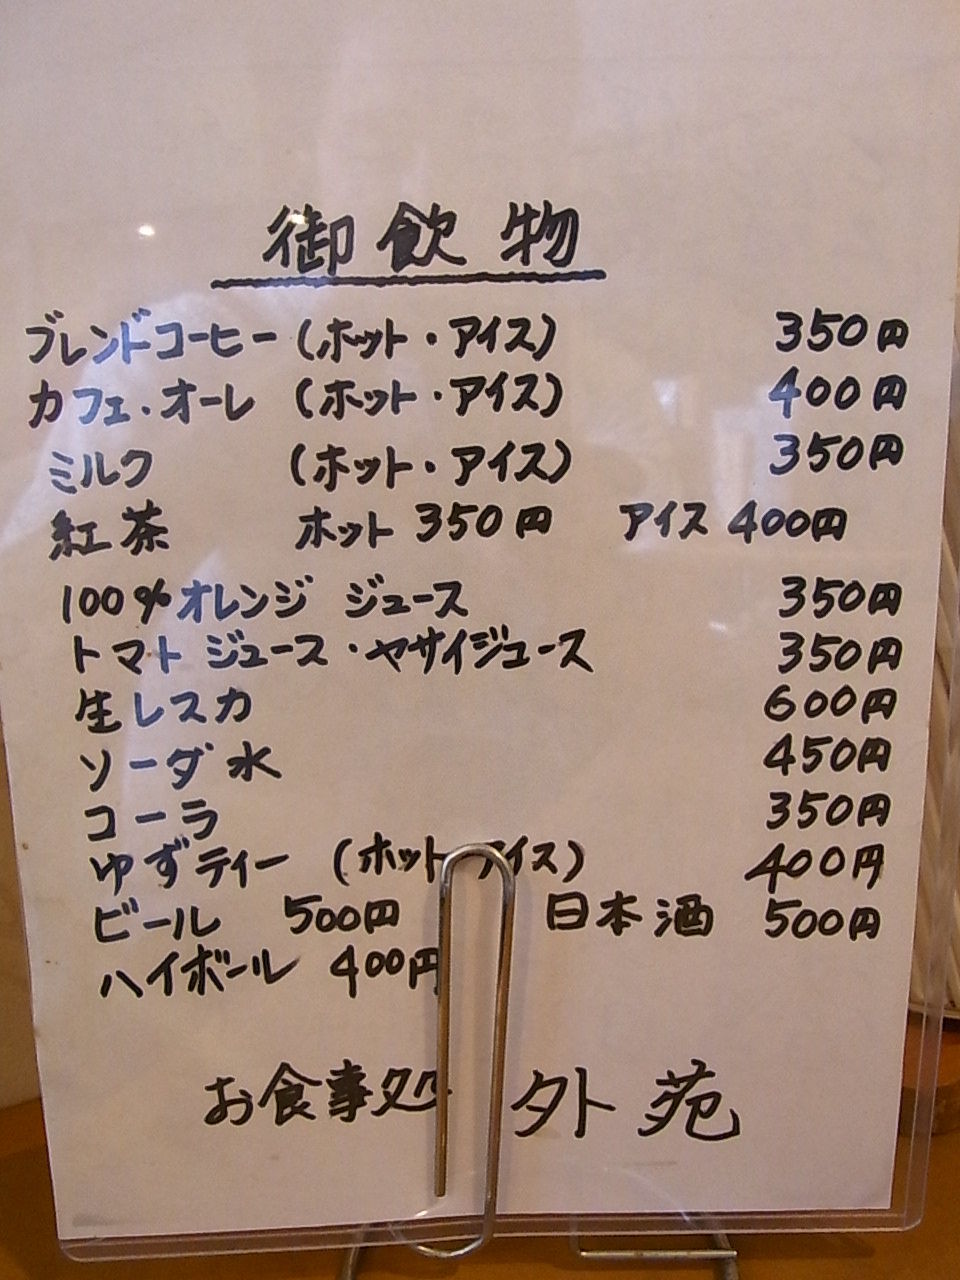 御飲物
ブレンドコーヒー (ホット・アイス) 350円
カフェ・オーレ (ホット・アイス) 400円
ミルク (ホット・アイス) 350円
紅茶 ホット 350円 アイス 400円
100%オレンジ ジュース 350円
トマト ジュース・ヤサイジュース 350円
生レスカ 600円
ソーダ水 450円
コーラ 350円
ゆずティー (ホット・アイス) 400円
ビール 500円 日本酒 500円
ハイボール 400円
お食事処 外苑